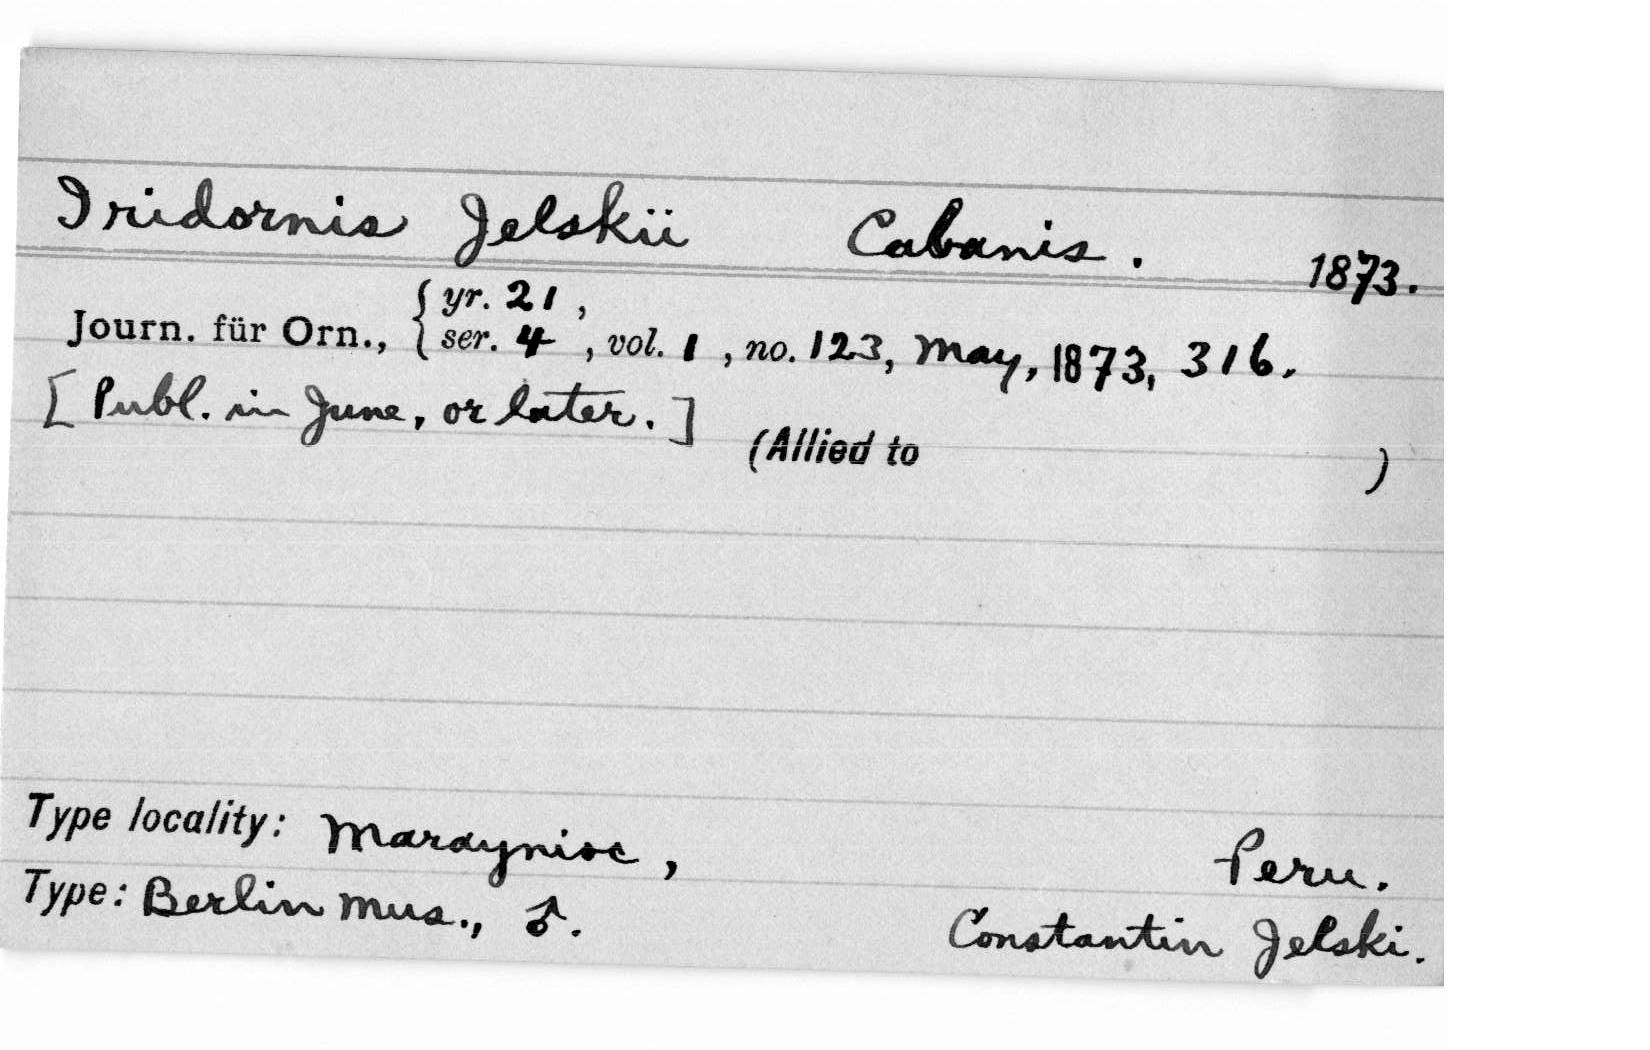 Iridornis Jelskii Cabanis. 1873.
Journ. für Orn., { yr. 21,
ser. 4, vol. 1, no. 123, May, 1873, 316.
[Publ. in June, or later.]
(Allied to )
Type locality: Maraynioc, Peru.
Type: Berlin Mus., ♂. Constantin Jelski.